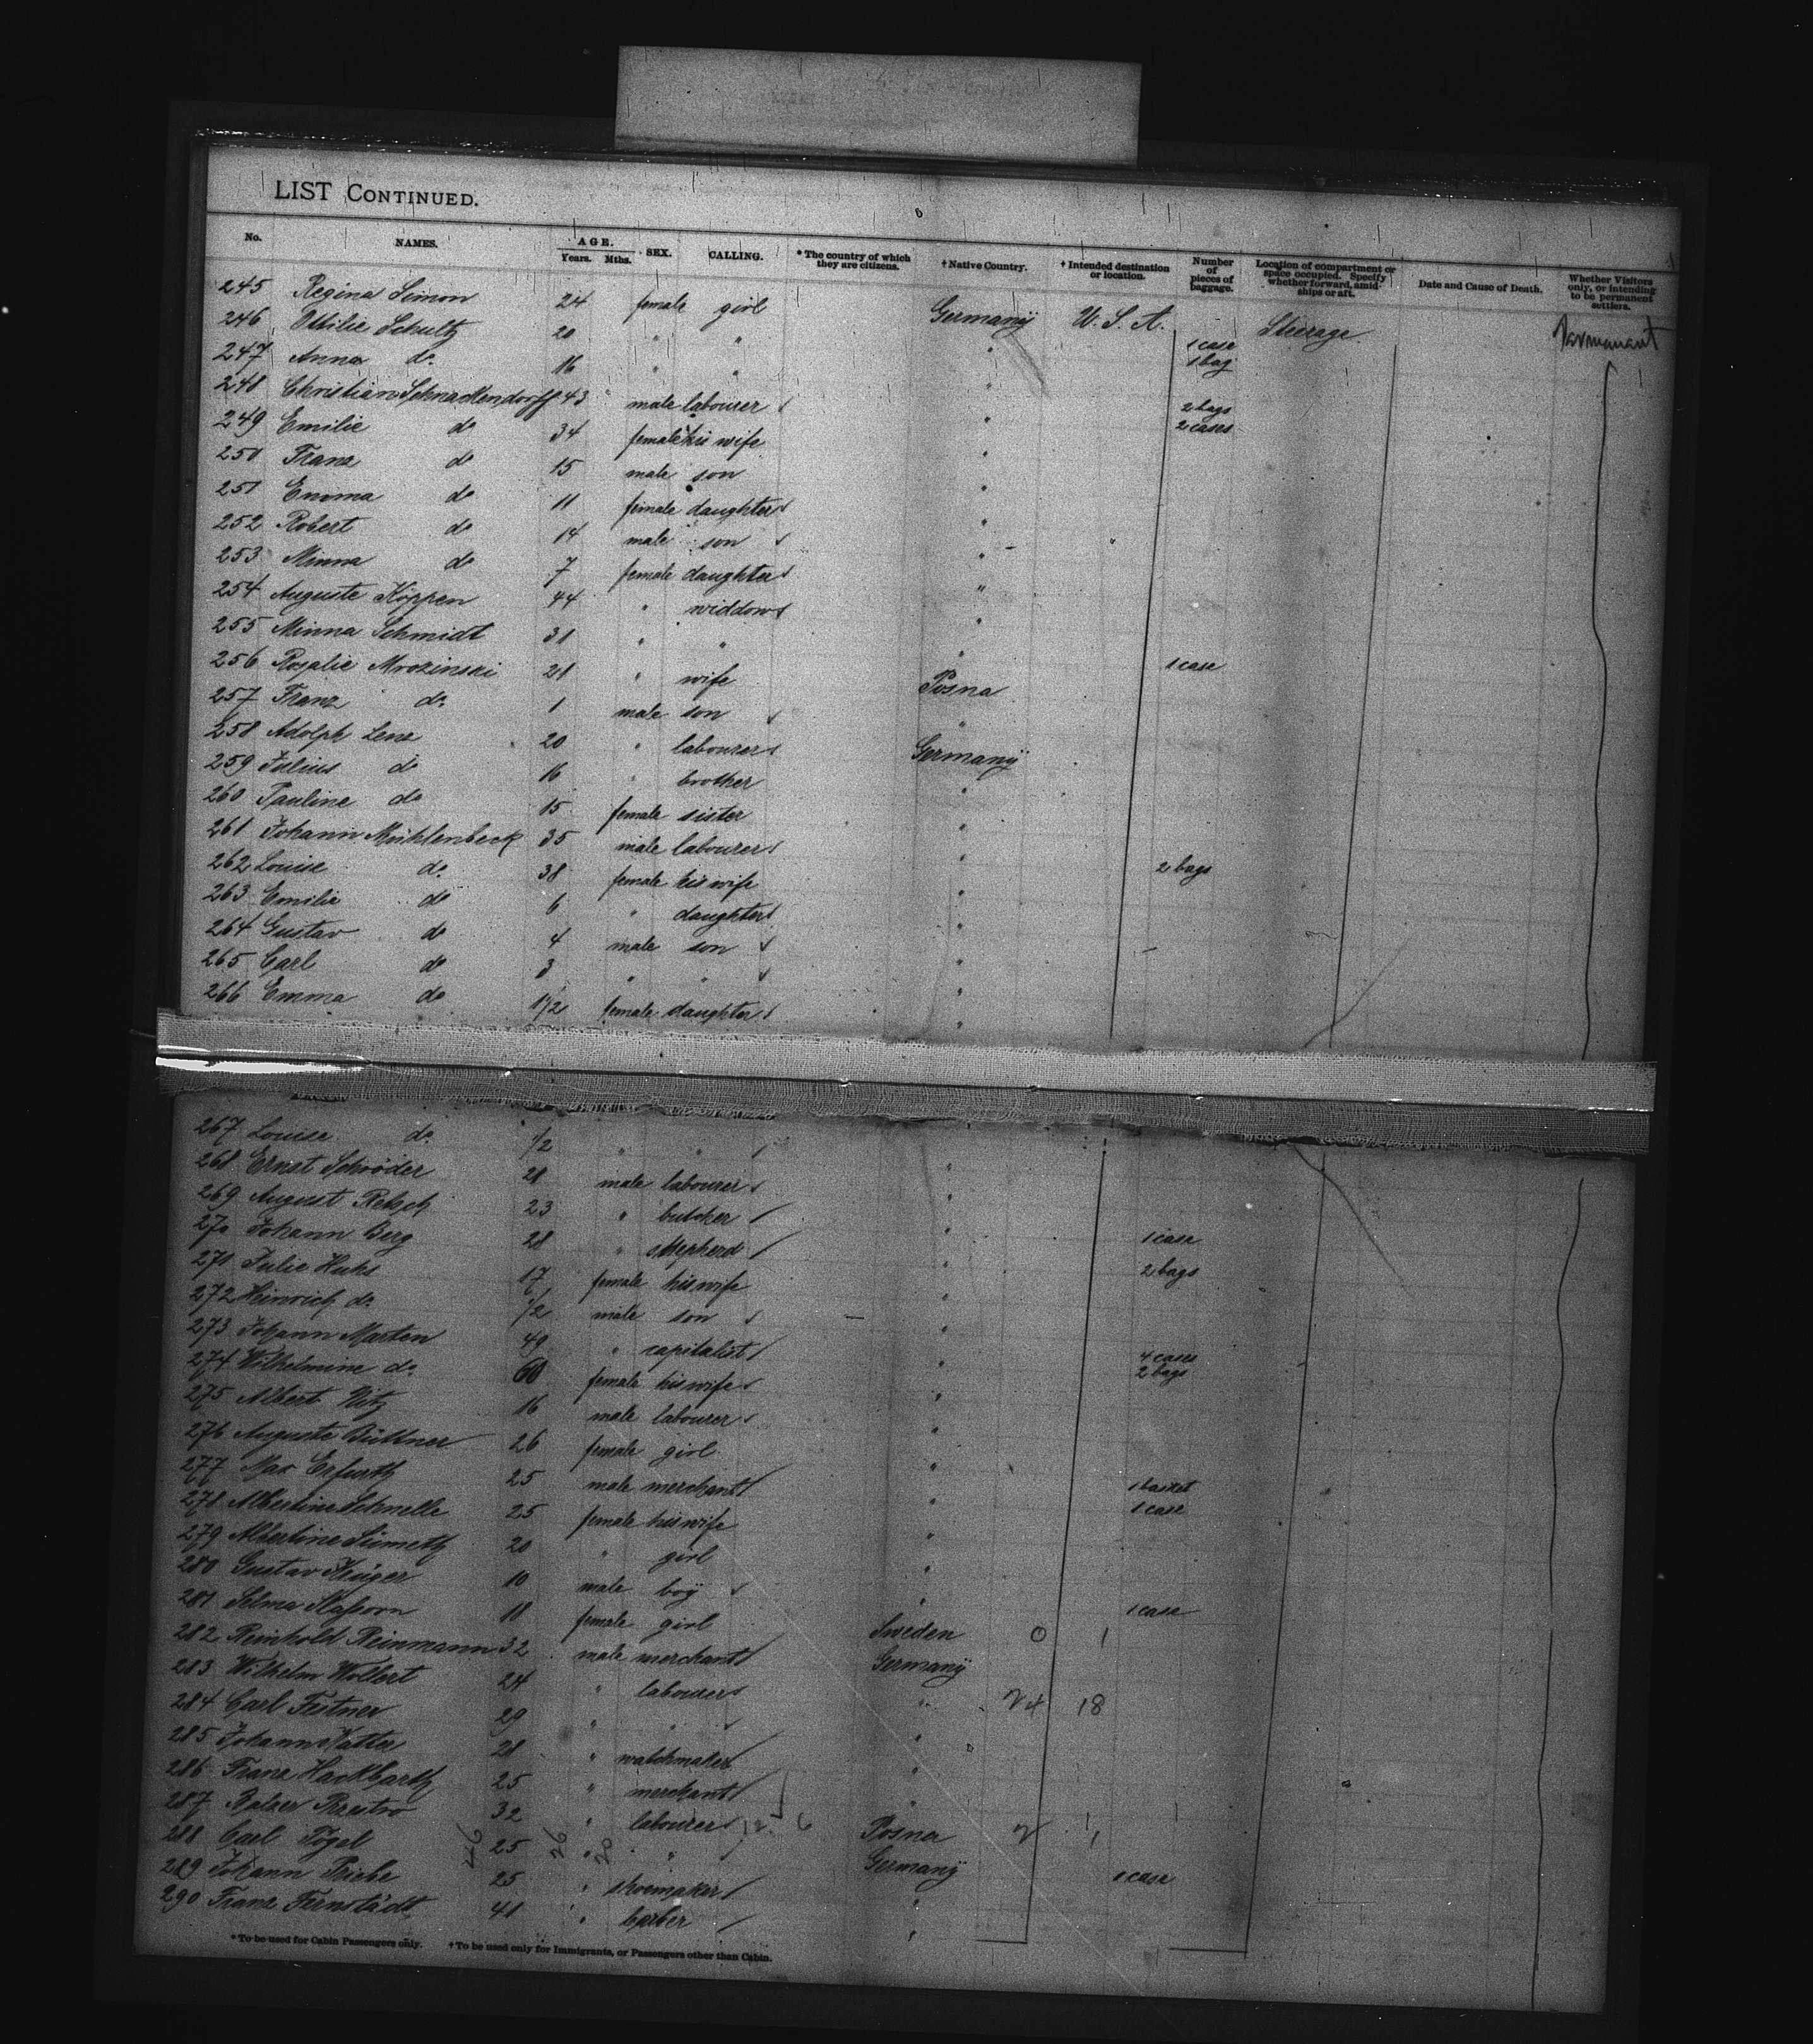 LIST CONTINUED.
No. NAMES. AGE. Years. Mths. SEX. CALLING. * The country of which they are citizens. † Native Country. † Intended destination or location. Number of pieces of baggage. Location of compartment or space occupied. Specify whether forward, amidships or aft. Date and Cause of Death. Whether Visitors only, or intending to be permanent settlers.
245 Regina Simon 24 female girl Germany U. S. A. Steerage
246 Ottilie Schultz 20 " " " 1 case
247 Anna do 16 " " " 1 bag
248 Christian Schnackendorff 43 male labourer " 2 bags
249 Emilie do 34 female his wife " 2 cases
250 Franz do 15 male son "
251 Emma do 11 female daughter "
252 Robert do 14 male son "
253 Minna do 7 female daughter "
254 Auguste Köppen 44 " widdow "
255 Minna Schmidt 31 " " "
256 Rosalie Mrozinski 21 " wife Posna 1 case
257 Franz do 1 male son "
258 Adolph Lenz 20 " labourer Germany
259 Julius do 16 " brother "
260 Pauline do 15 female sister "
261 Johann Mühlenbeck 35 male labourer "
262 Louise do 38 female his wife " 2 bags
263 Emilie do 6 " daughter "
264 Gustav do 4 male son "
265 Carl do 3 " " "
266 Emma do 1 1/2 female daughter "
267 Louise do 1/2 " " "
268 Ernst Schröder 28 male labourer "
269 August Retsch 23 " butcher "
270 Johann Berg 28 " shepherd " 1 case
271 Julie Huhs 17 female his wife " 2 bags
272 Heinrich do 1/2 male son "
273 Johann Marten 49 " capitalist " 4 cases
274 Wilhelmine do 60 female his wife " 2 bags
275 Albert 16 male labourer "
276 Auguste Büttner 26 female girl "
277 Max Erfurth 25 male merchant " 1 basket
278 Albertine Schnelle 25 female his wife " 1 case
279 Albertine 20 " girl "
280 Gustav 10 male boy "
281 Selma 18 female girl Sweden 0 1 1 case
282 Reinhold Reinmann 32 male merchant Germany
283 Wilhelm Wollert 24 " labourer " 24 18
284 Carl Festner 29 " " "
285 Johann Katter 28 " watchmaker "
286 Franz Hackbarth 25 " merchant "
287 32 " labourer 6 Posna 2 1
288 Carl Pögel 25 " " Germany
289 Johann Priebe 25 " shoemaker " 1 case
290 Franz Fernstädt 41 " barber "
* To be used for Cabin Passengers only. † To be used only for Immigrants, or Passengers other than Cabin.